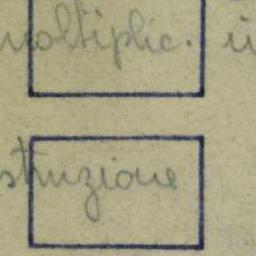 moltiplic. i
struzione